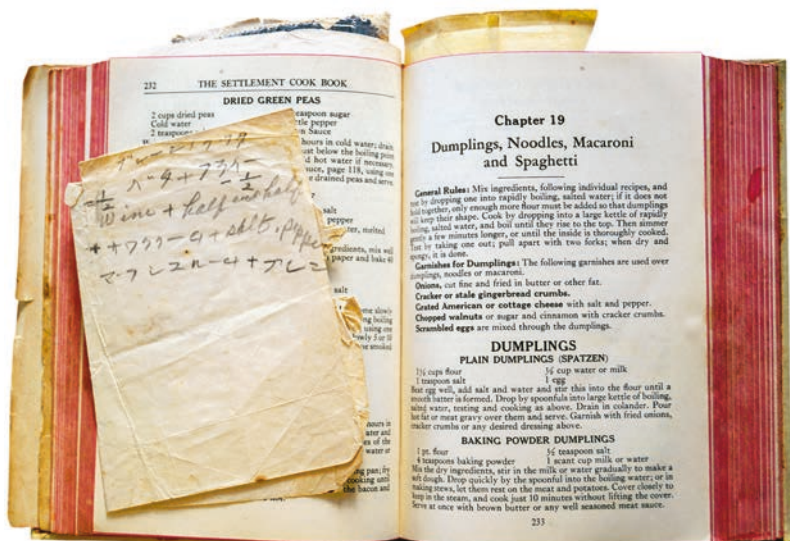 232 THE SETTLEMENT COOK BOOK
DRIED GREEN PEAS
2 cups dried peas
Cold water
2
sugar
pepper
Sauce
hours in cold water; drain
below the boiling point
hot water if necessary
page 118, using one
drained peas and serve
Wine + half and half
salt, pepper
salt
pepper
melted
mix well
paper and bake 40
salt
slowly
boiling
using one
5 or 10
smoked
hours in
water and
of the
water or
pan; fry
cooking until
the bacon and
Chapter 19
Dumplings, Noodles, Macaroni
and Spaghetti
General Rules: Mix ingredients, following individual recipes, and
test by dropping one into rapidly boiling, salted water; if it does not
hold together, only enough more flour must be added so that dumplings
will keep their shape. Cook by dropping into a large kettle of rapidly
boiling, salted water, and boil until they rise to the top. Then simmer
gently a few minutes longer, or until the inside is thoroughly cooked.
Test by taking one out; pull apart with two forks; when dry and
spongy, it is done.
Garnishes for Dumplings: The following garnishes are used over
dumplings, noodles or macaroni.
Onions, cut fine and fried in butter or other fat.
Cracker or stale gingerbread crumbs.
Grated American or cottage cheese with salt and pepper.
Chopped walnuts or sugar and cinnamon with cracker crumbs.
Scrambled eggs are mixed through the dumplings.
DUMPLINGS
PLAIN DUMPLINGS (SPATZEN)
1½ cups flour ½ cup water or milk
1 teaspoon salt 1 egg
Beat egg well, add salt and water and stir this into the flour until a
smooth batter is formed. Drop by spoonfuls into large kettle of boiling,
salted water, testing and cooking as above. Drain in colander. Pour
hot fat or meat gravy over them and serve. Garnish with fried onions,
cracker crumbs or any desired dressing above.
BAKING POWDER DUMPLINGS
1 pt. flour ½ teaspoon salt
4 teaspoons baking powder 1 scant cup milk or water
Mix the dry ingredients, stir in the milk or water gradually to make a
soft dough. Drop quickly by the spoonful into the boiling water; or in
making stews, let them rest on the meat and potatoes. Cover closely to
keep in the steam, and cook just 10 minutes without lifting the cover.
Serve at once with brown butter or any well seasoned meat sauce.
233